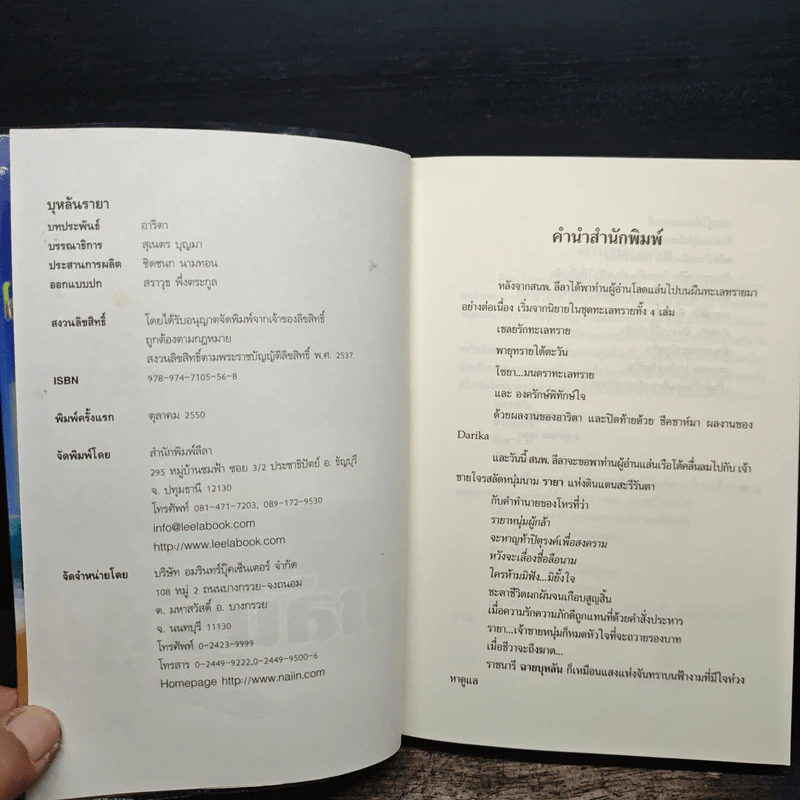 บุหลันรายา
บทประพันธ์ อาริตา
บรรณาธิการ สุเนตร บุญมา
ประสานการผลิต ชิดชนก นามทอน
ออกแบบปก สราวุธ พึ่งตระกูล
สงวนลิขสิทธิ์ โดยได้รับอนุญาตจัดพิมพ์จากเจ้าของลิขสิทธิ์
ถูกต้องตามกฎหมาย
สงวนลิขสิทธิ์ตามพระราชบัญญัติลิขสิทธิ์ พ.ศ. 2537
ISBN 978-974-7105-56-8
พิมพ์ครั้งแรก ตุลาคม 2550
จัดพิมพ์โดย สำนักพิมพ์ลีลา
295 หมู่บ้านชมฟ้า ซอย 3/2 ประชาธิปัตย์ อ. ธัญบุรี
จ. ปทุมธานี 12130
โทรศัพท์ 081-471-7203, 089-172-9530
info@leelabook.com
http://www.leelabook.com
จัดจำหน่ายโดย บริษัท อมรินทร์บุ๊คเซ็นเตอร์ จำกัด
108 หมู่ 2 ถนนบางกรวย-จงถนอม
ต. มหาสวัสดิ์ อ. บางกรวย
จ. นนทบุรี 11130
โทรศัพท์ 0-2423-9999
โทรสาร 0-2449-9222,0-2449-9500-6
Homepage http://www.naiin.com
คำนำสำนักพิมพ์
หลังจากสนพ. ลีลาได้พาท่านผู้อ่านโลดแล่นไปบนผืนทะเลทรายมา
อย่างต่อเนื่อง เริ่มจากนิยายในชุดทะเลทรายทั้ง 4 เล่ม
เชลยรักทะเลทราย
พายุทรายใต้ตะวัน
โซยา...มนตราทะเลทราย
และ องครักษ์พิทักษ์ใจ
ด้วยผลงานของอาริตา และปิดท้ายด้วย ชีคชาห์มา ผลงานของ
Darika
และวันนี้ สนพ. ลีลาจะขอพาท่านผู้อ่านแล่นเรือโต้คลื่นลมไปกับ เจ้า
ชายโจรสลัดหนุ่มนาม รายา แห่งดินแดนสะรีรันตา
กับคำทำนายของโหรที่ว่า
รายาหนุ่มผู้กล้า
จะหาญท้าปัตุรงค์เพื่อสงคราม
หวังจะเลื่องชื่อลือนาม
ใครห้ามมิฟัง...มิยั้งใจ
ชะตาชีวิตผกผันจนเกือบสูญสิ้น
เมื่อความรักความภักดีถูกแทนที่ด้วยคำสั่งประหาร
รายา...เจ้าชายหนุ่มก็หมดหัวใจที่จะถวายรองบาท
เมื่อชีวาจะถึงฆาต...
ราชนารี ฉายบุหลัน ก็เหมือนแสงแห่งจันทราบนฟ้างามที่มีใจห่วง
หาดูแล